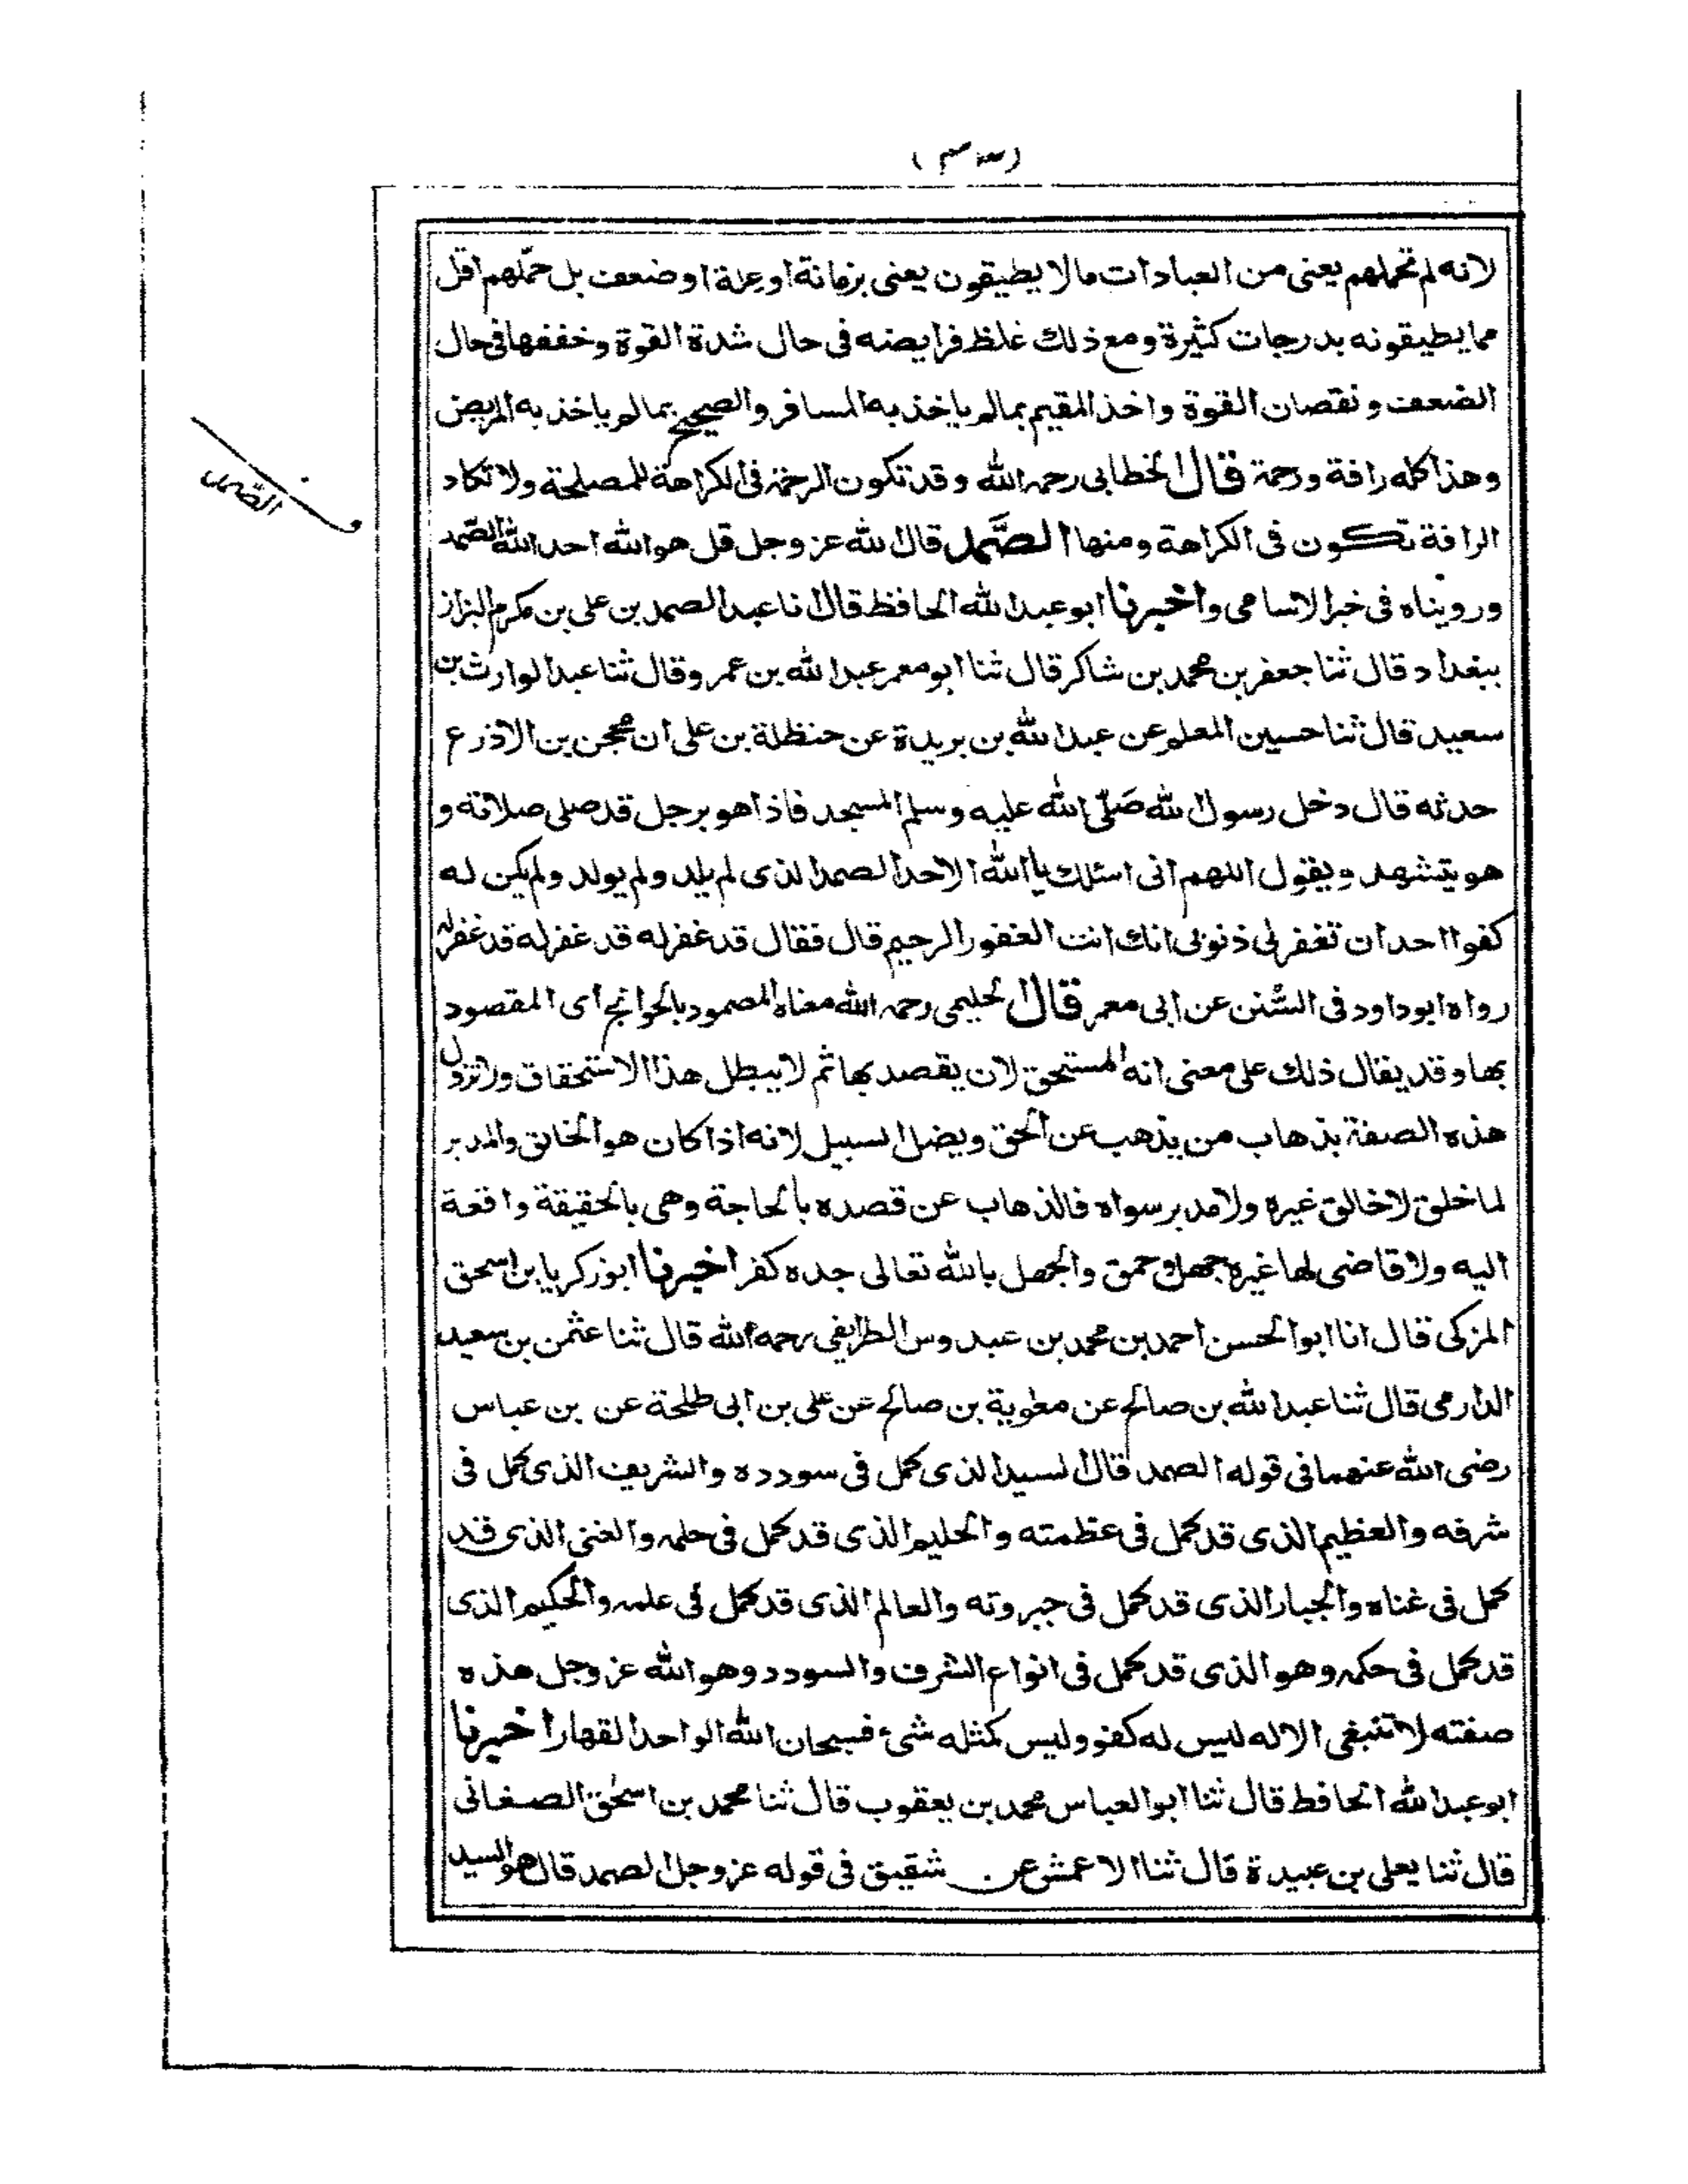 لانه لم تحملهم يعنى من العبادات مالا يطيقون يعنى بزمانة او علة او ضعف بل حمّلهم اقل
مما يطيقونه بدرجات كثيرة ومع ذلك غلظ فرايضه فى حال شدة القوة وخففها فى حال
الضعف ونقصان القوة واخذ المقيم بما لم ياخذ به المسافر والصحيح بما لم ياخذ به المريض
وهذا كله رافة ورحمة قال الخطابى رحمه الله وقد تكون الرحمة فى الكراهة للمصلحة ولا تكاد
الرافة تكون فى الكراهة ومنها الصَّمد قال الله عز وجل قل هو الله احد الله الصّمد
ورويناه فى خبر الاسامى واخبرنا ابو عبد الله الحافظ قال انا عبد الصمد بن على بن مكرم البزاز
ببغداد قال ثنا جعفر بن محمد بن شاكر قال ثنا ابو معمر عبد الله بن عمرو قال ثنا عبد الوارث بن
سعيد قال ثنا حسين المعلم عن عبد الله بن بريدة عن حنظلة بن على ان محجن بن الاذرع
حدثه قال دخل رسول الله صَلّى الله عليه وسلم المسجد فاذا هو برجل قد صلى صلاته و
هو يتشهد ويقول اللهم انى اسئلك يا الله الاحد الصمد الذى لم يلد ولم يولد ولم يكن له
كفوا احد ان تغفر لى ذنوبى انك انت الغفور الرحيم قال فقال قد غفر له قد غفر له قد غفر له
رواه ابو داود فى السُّنن عن ابى معمر قال الحليمى رحمه الله معناه المصمود بالحوائج اى المقصود
بها وقد يقال ذلك على معنى انه المستحق لان يقصد بها ثم لا يبطل هذا الاستحقاق ولا تزول
هذه الصفة بذهاب من يذهب عن الحق ويضل السبيل لانه اذا كان هو الخالق والمدبر
لما خلق لا خالق غيره ولا مدبر سواه فالذهاب عن قصده بالحاجة وهى بالحقيقة واقعة
اليه ولا قاضى لها غيره جهل وحمق والجهل بالله تعالى جده كفر اخبرنا ابو زكريا بن اسحق
المزكى قال انا ابو الحسن احمد بن محمد بن عبدوس الطرايفى رحمه الله قال ثنا عثمن بن سعيد
الدارمى قال ثنا عبد الله بن صالح عن معٰوية بن صالح عن على بن ابى طلحة عن بن عباس
رضى الله عنهما فى قوله الصمد قال السيد الذى كمل فى سودده والشريف الذى كمل فى
شرفه والعظيم الذى قد كمل فى عظمته والحليم الذى قد كمل فى حلمه والغنى الذى قد
كمل فى غناه والجبار الذى قد كمل فى جبروته والعالم الذى قد كمل فى علمه والحكيم الذى
قد كمل فى حكمه وهو الذى قد كمل فى انواع الشرف والسودد وهو الله عز وجل هذه
صفته لا تنبغى الا له ليس له كفو وليس كمثله شىء فسبحان الله الواحد القهار اخبرنا
ابو عبد الله الحافظ قال ثنا ابو العباس محمد بن يعقوب قال ثنا محمد بن اسحٰق الصغانى
قال ثنا يعلى بن عبيدة قال ثنا الاعمش عن شقيق فى قوله عز وجل الصمد قال هو السيد